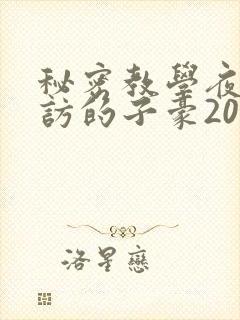 秘密教學夜
訪的子豪20
洛星戀